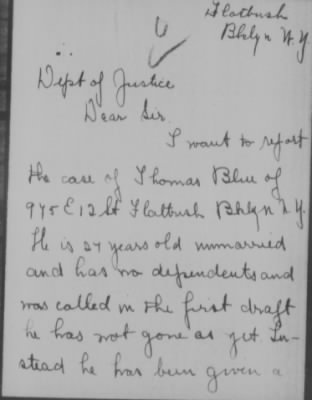 Flatbush
Bklyn N.Y.
Dept of Justice
Dear Sir.
I want to report
the case of Thomas Blue of
945 E 12 St Flatbush Bklyn N.Y.
He is 27 years old unmarried
and has no dependents and
was called in the first draft
he has not gone as yet. In-
stead he has been given a